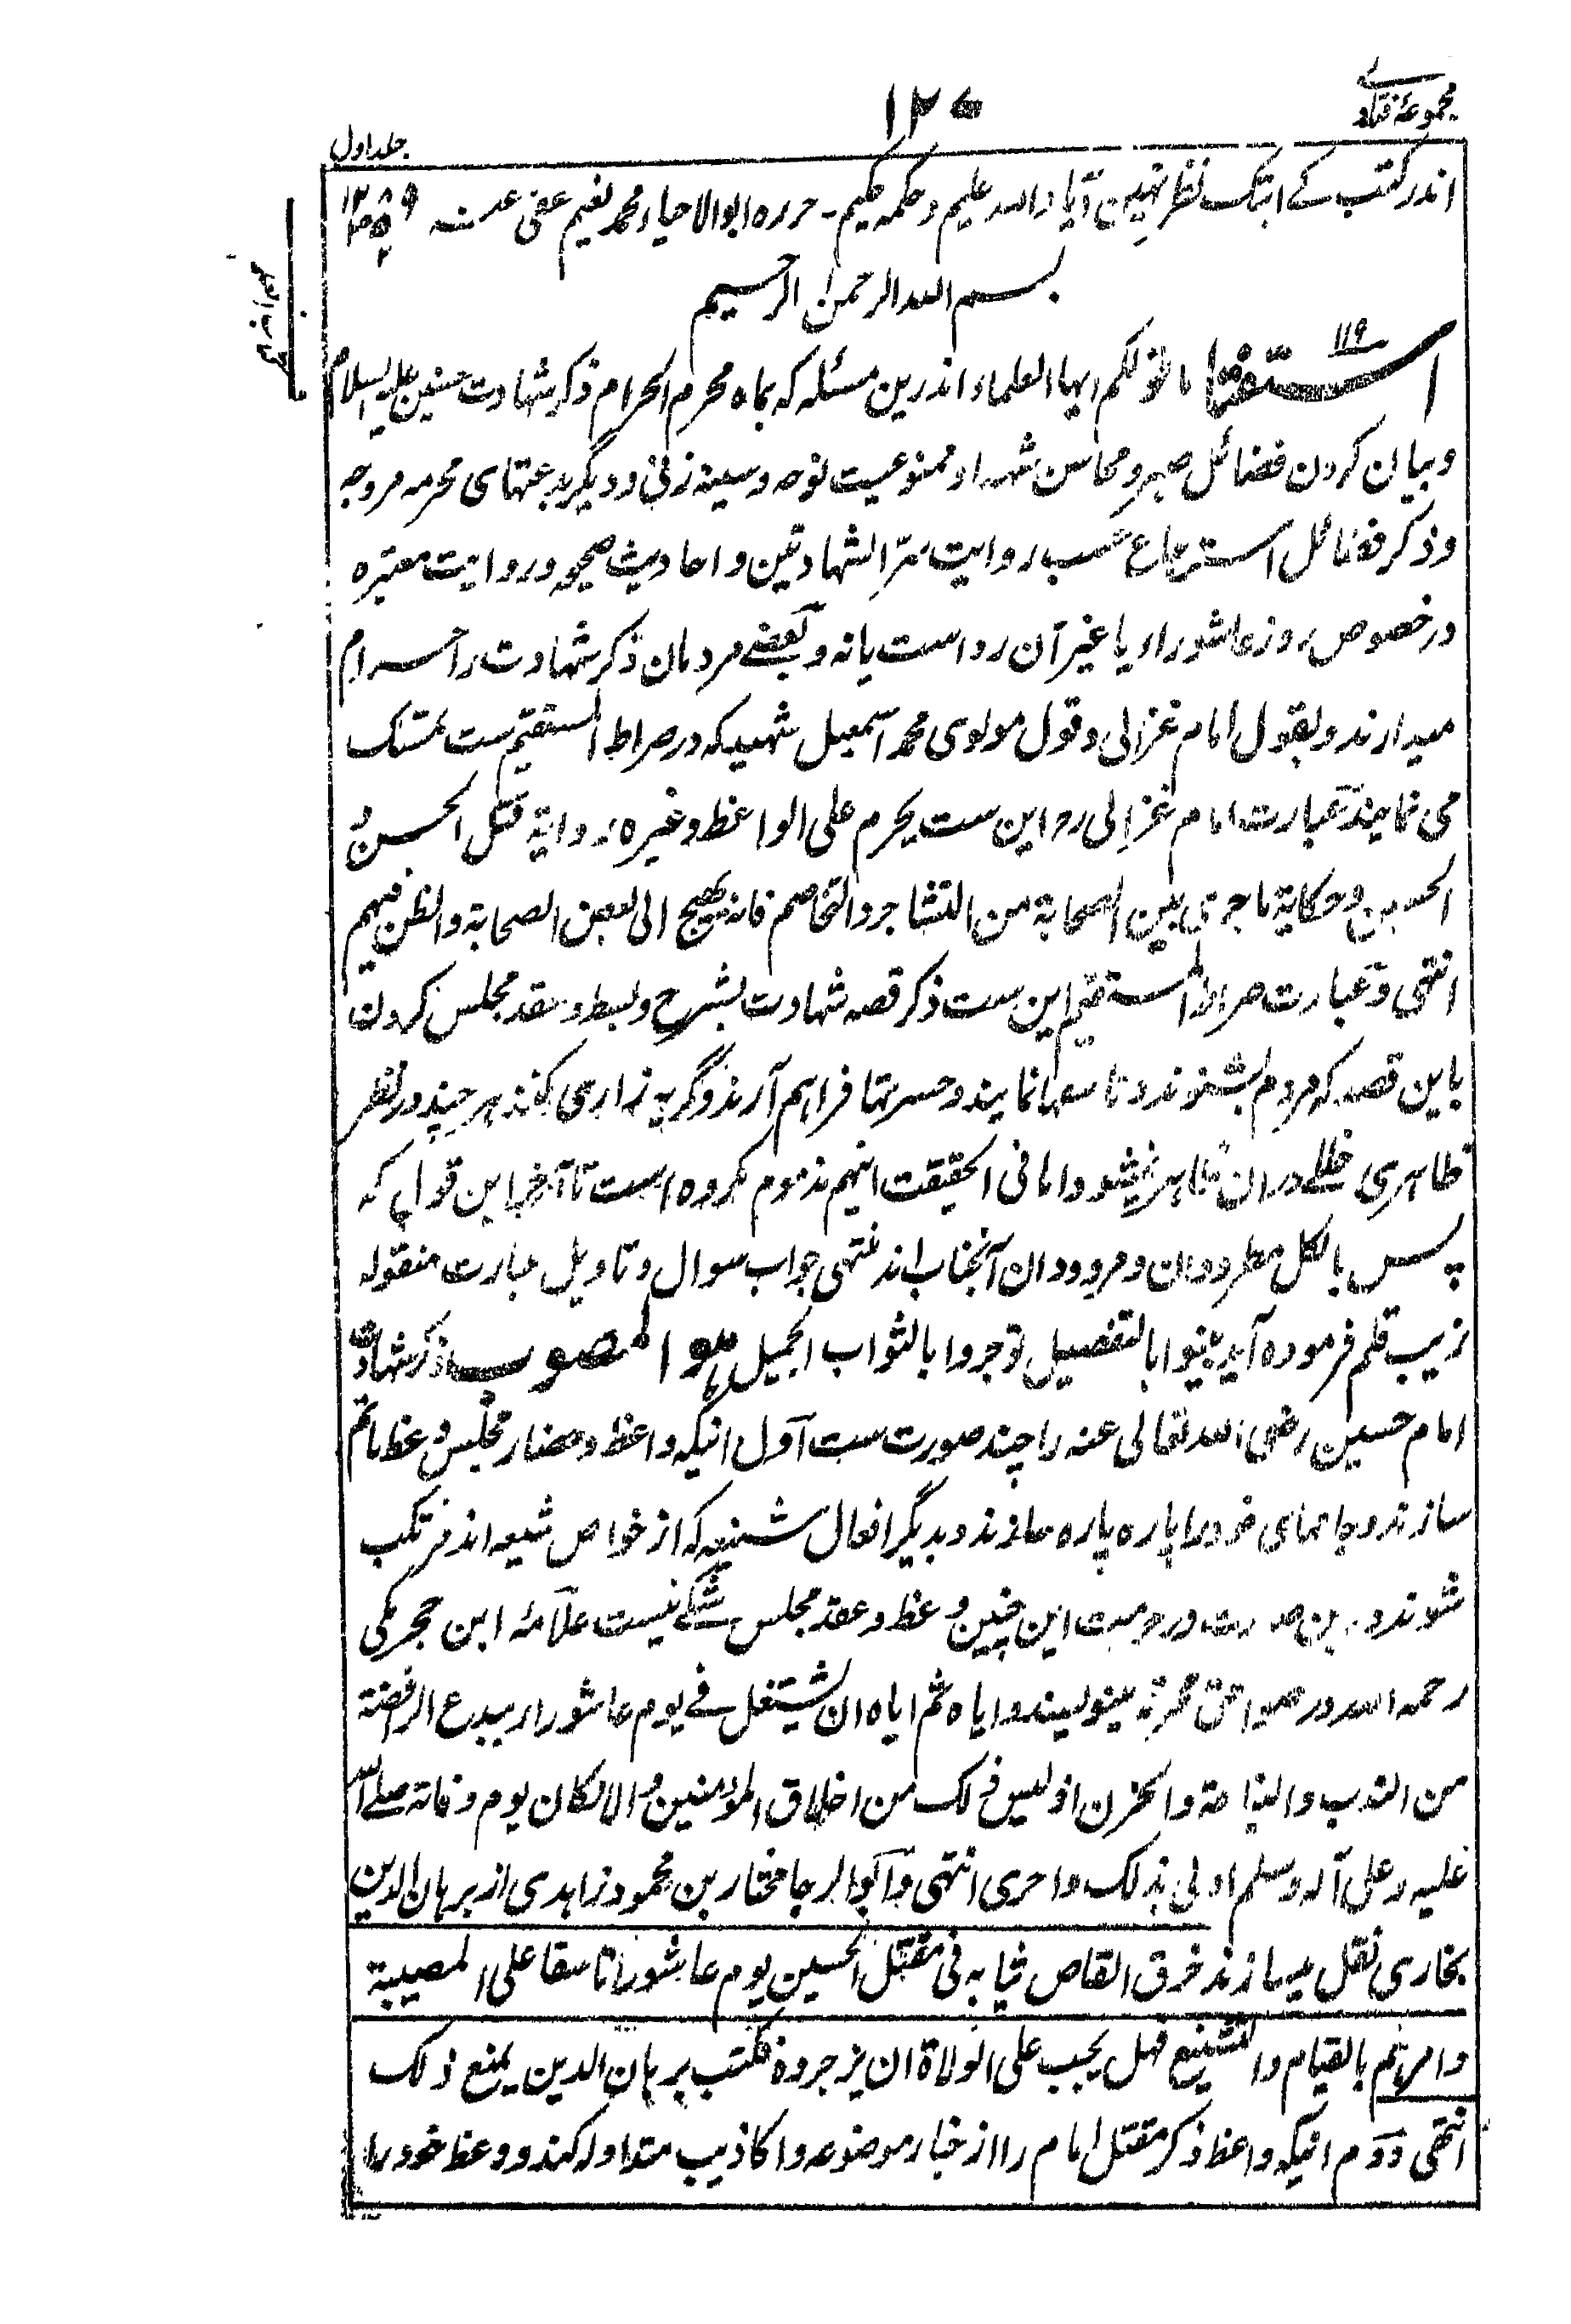 مجموعۂ فتاوے
۱۲۰
جلد اول
اندر کتب کے ابتک نظر نہین آیا واللہ علیم وحکمہ حکیم۔ حررہ ابوالاحیاء محمد نعیم عفی عنہ
بسم اللہ الرحمن الرحیم
۱۱۹
استفتا ما قولکم ایہا العلماء اندرین مسئلہ کہ بماہ محرم الحرام ذکر شہادت حسنین علیہما السلام
وبیان کردن فضائل صبر ومحاسن شہداء وممنوعیت نوحہ وسینہ زنی ودیگر بدعتہای محرمہ مروجہ
وذکر فضائل استرجاع حسب روایت سر الشہادتین واحادیث صحیحہ وروایت معتبرہ
در خصوص روز عاشوراء یا غیر آن رواست یا نہ وبعضے مردمان ذکر شہادت را حرام
میدارند وبقول امام غزالی وقول مولوی محمد اسمعیل شہید کہ در صراط المستقیم ست تمسک
می نمایند عبارت امام غزالی رح این ست یحرم علی الواعظ وغیرہ روایۃ قتل الحسن و
الحسین وحکایۃ ما جری بین الصحابۃ من التشاجر والتخاصم فانہ یہیج الی بعض الصحابۃ والطعن فیہم
انتہی وعبارت صراط المستقیم این ست ذکر قصہ شہادت بشرح وبسط وعقد مجلس کردن
باین قصد کہ مردم بشنوند وتاسفہا نمایند وحسرتہا فراہم آرند وگریہ زاری کنند ہر چند در نظر
ظاہری خللے دران ظاہر نمیشود اما فی الحقیقت اینہم مذموم مکروہ است تا آخر این قول کہ
پس بالکل مطرودان ومردودان آنجناب اند انتہی جواب سوال وتاویل عبارت منقولہ
زیب قلم فرمودہ آید بینوا بالتفصیل توجروا بالثواب الجمیل ہو المصوب ذکر شہادت
امام حسین رضی اللہ تعالی عنہ را چند صورت ست اول اینکہ واعظ وحضار مجلس وعظ ماتم
سازند وجامہای خود را پارہ پارہ سازند وبدیگر افعال شنیعہ کہ از خواص شیعہ اند مرتکب
شوند درین صورت در حرمت این چنین وعظ وعقد مجلس شکے نیست علامۂ ابن حجر مکی
رحمہ اللہ در صواعق محرقہ مینویسند وایاہ ثم ایاہ ان یشتغل فے یوم عاشوراء ببدع الرافضۃ
من الندب والنیاحۃ والحزن اذ لیس ذلک من اخلاق المؤمنین والا لکان یوم وفاتہ صلے اللہ
علیہ وعلی آلہ وسلم اولی بذلک واحری انتہی وابو الرجا مختار بن محمود زاہدی از برہان الدین
بخاری نقل میسازند خرق القاص ثیابہ فی مقتل الحسین یوم عاشورا تاسفا علی المصیبۃ
وامرہم بالقیام والتشنیع فہل یجب علی الولاۃ ان یزجروہ فکتب برہان الدین یمنع ذلک
انتہی دوم اینکہ واعظ ذکر مقتل امام را از اخبار موضوعہ واکاذیب متداولہ کند ووعظ خود را